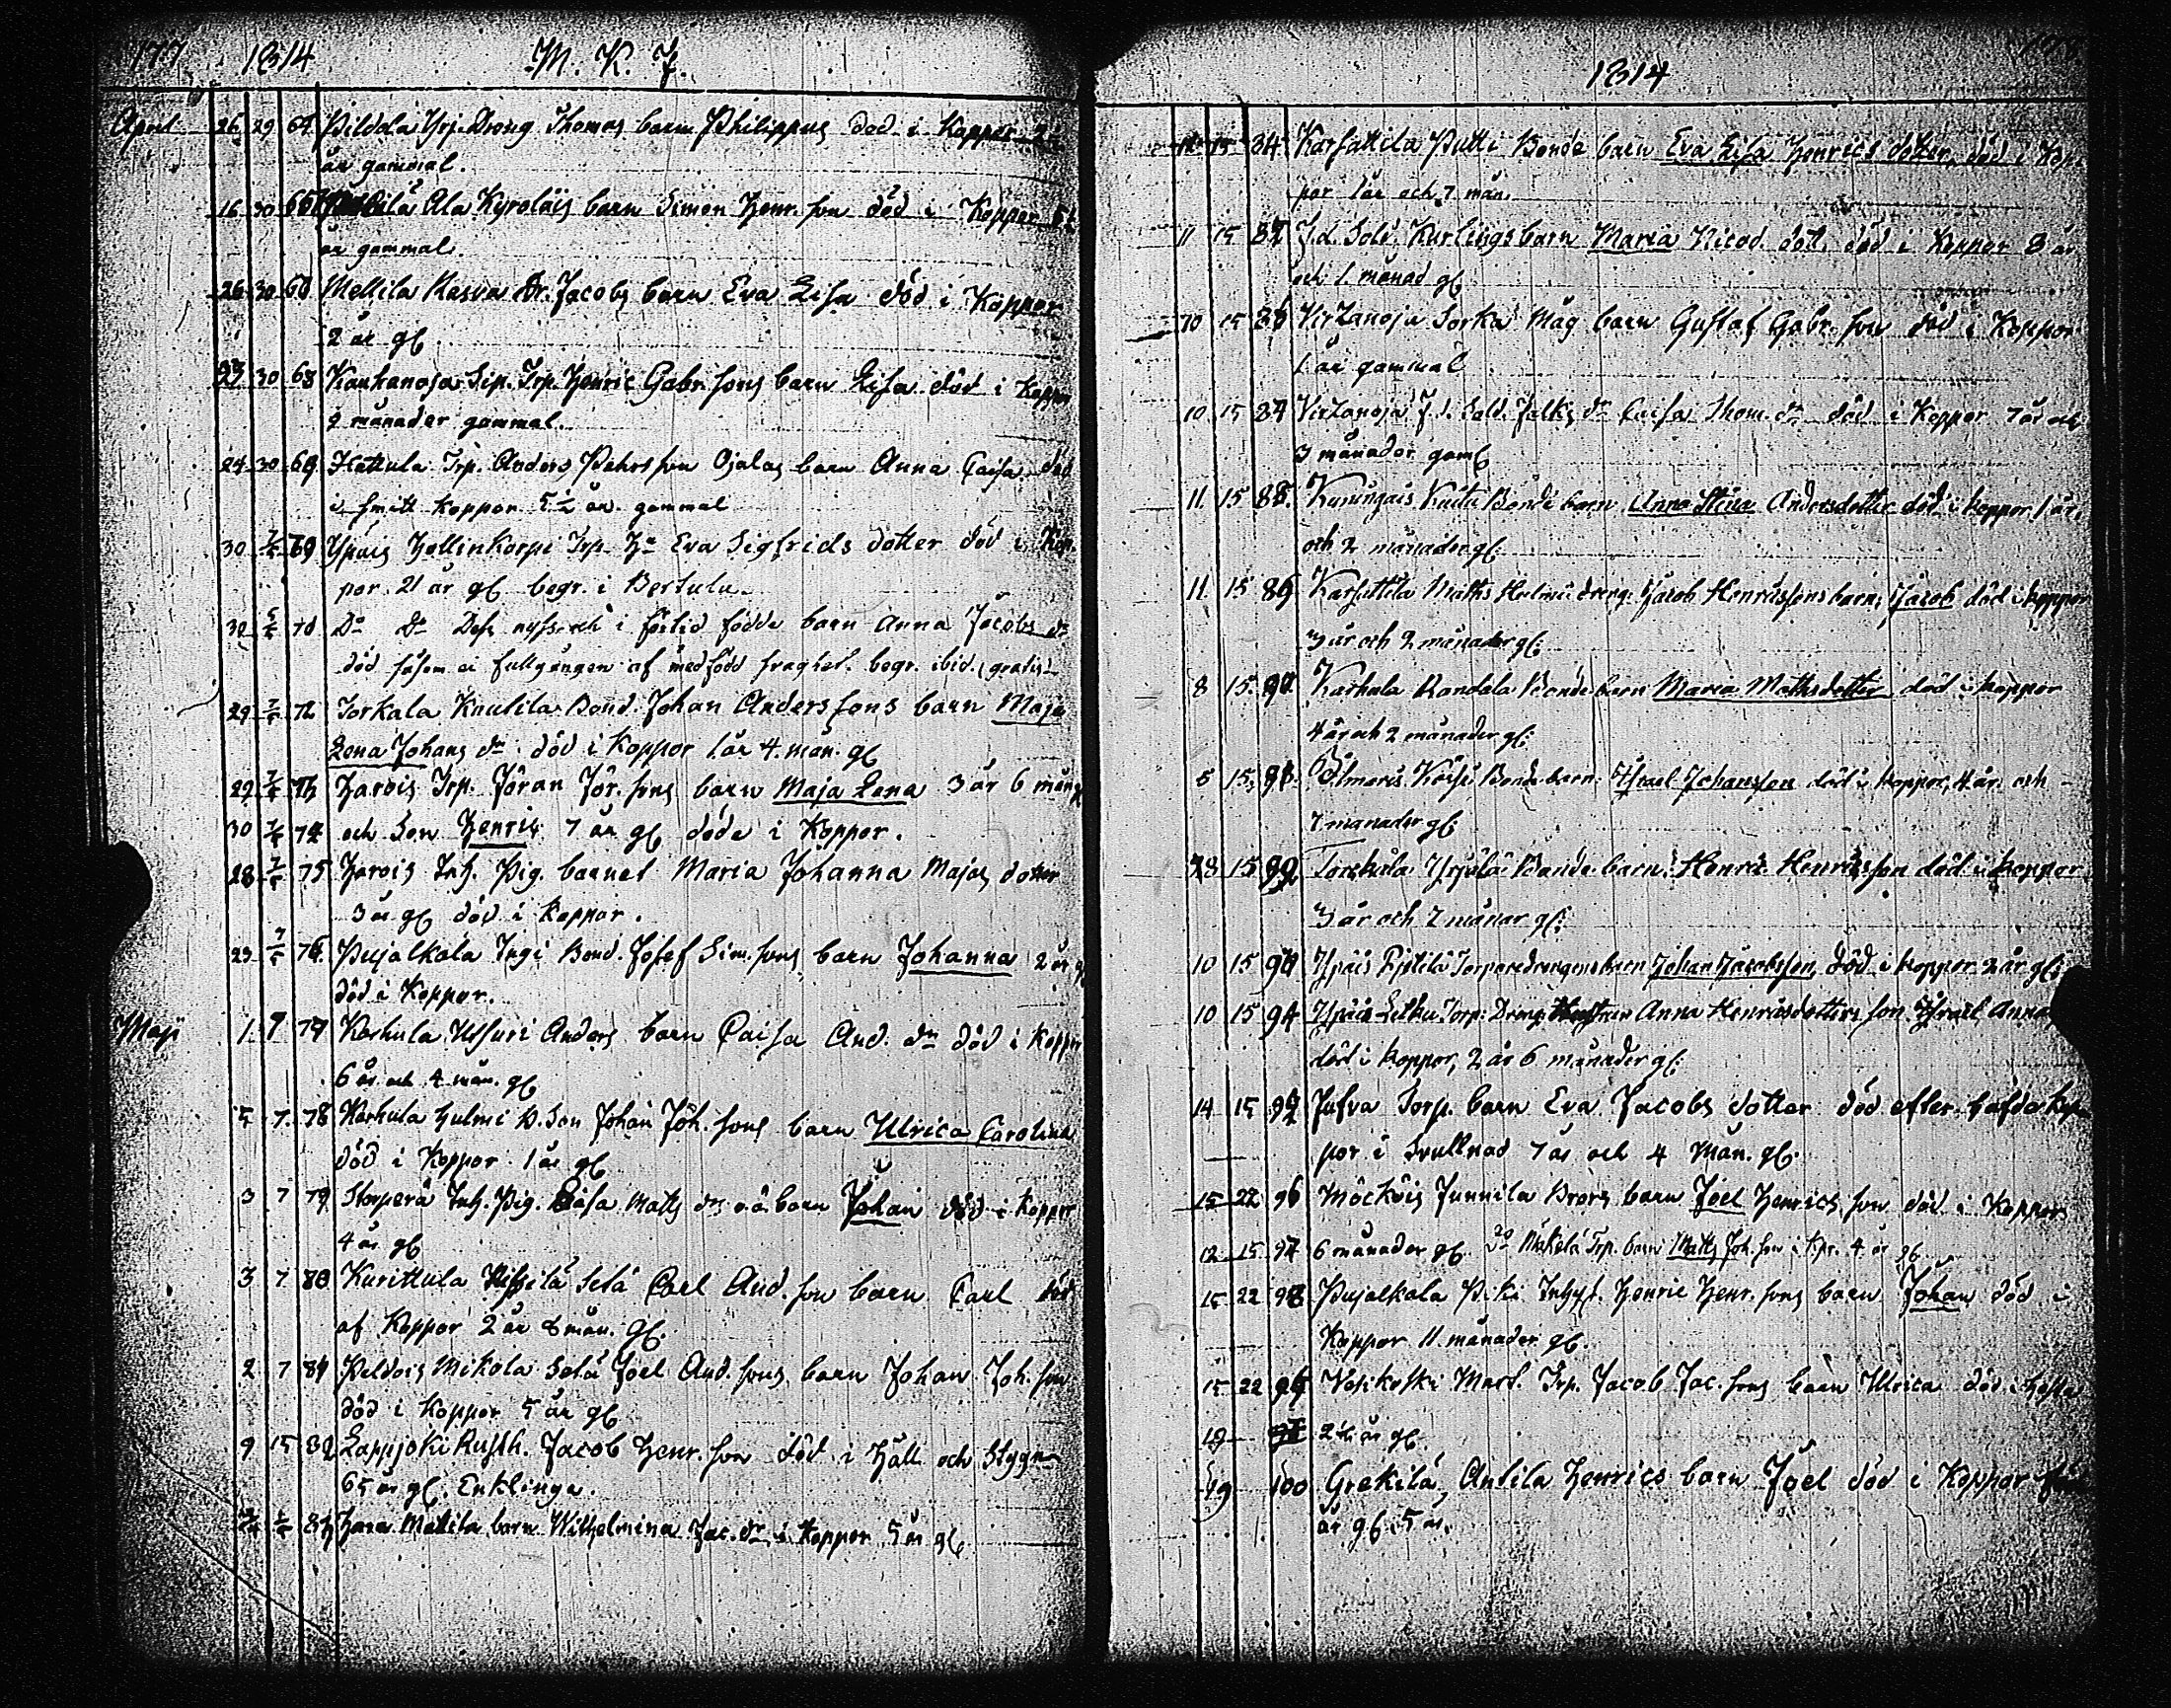 177 1814 M. K. J.
April 26 29 64 Pildola Yrj. Dreng Thomas barn Philippus död i Koppor 2
år gammal.
16 30 Ala Kyrolais barn Simon Henr. son död i Koppor
år gammal.
26 30 Mellila Masva Dr. Jacobs barn Eva Lisa död i Koppor
2 år gl.
30 68 Kaukanoja Sip. Trp. Henric Gabr. sons barn Lisa död i Koppor
9 månader gammal.
24 30 69 Hattula Trp. Anders Pehrs son Ojalas barn Anna Caisa död
i smitt koppor 5 1/2 år gammal
30 7/5 Ypäis Hallinkorpi Trp. Hu Eva Sigfrids dotter död i Kop-
por 21 år gl. begr. i Bertula
30 5/5 70 Do Do Dess i förtid födde barn Anna Jacobs dr
död såsom ej fullgången af medfödd svaghet. begr. ibid. (gratis)
29 7/5 Torkala Knutila Bond. Johan Anderssons barn Maja
Lena Johans dr död i Koppor 1 år 4 mån. gl
29 7/5 Harois Trp. Jöran Jör. sons barn Maja Lena 3 år 6 mån
30 7/5 74 och Son Henric 7 år gl döde i Koppor.
28 7/5 75 Harois Inh. Pig. barnet Maria Johanna Majas dotter
3 år gl död i Koppor.
23 7/5 76 Pujalkala Ingi Bond. Josef Sim. sons barn Johanna 2 år gl
död i Koppor.
Maji 1 9 Karhula Ussuri Anders barn Caisa And. dr död i Koppor
6 år och 4 mån. gl
5 7 78 Karhula Hulmi B. Son Johan Joh. sons barn Ulrica Carolina
död i Koppor 1 år gl
3 7 79 Storperä Inh. Pig. Caisa Matts drs o.ä. barn Johan död i Koppor
4 år gl
3 7 80 Kurittula Seta Carl And. son barn Carl död
af Koppor 2 år 8 mån. gl.
2 7 81 Peldois Mikola Seta Joel And. sons barn Johan Joh. son
död i Koppor 5 år gl
9 15 82 Lappjoki Rusth. Jacob Henr. son död i Håll och Stygn
65 år gl. Enklinga.
Hara Matila barn Wilhelmina Jac. dr i Koppor 5 år gl
1814
15 84 Karsattila Putti Bonde barn Eva Lisa Henrics dotter, död i Kop-
por 1 år och 7 mån.
11 15 Kurlings barn Maria Nicod. dott. död i Koppor 8 år
och 1 månad gl
10 15 86 Virtanoja Sorka Måg barn Gustaf Gabr. son död i Koppor
1 år gammal
10 15 87 Virtanoja Sold. Falks dr Caisa Thom. dr död i Koppor 7 år och
3 månader gaml
11 15 88 Bonde barn Anna Stina Andersdotter död i koppor 1 år
och 2 månader gl.
11 15 89 Karsattila Matts Hulmi dreng Jacob Henrikssons barn Jacob död i koppor
3 år och 2 månader gl:
8 15 90 Karhula Randala Bonde barn Maria Mathsdotter död i koppor
4 år och 2 månader gl:
5 15 91 Bonde barn Israel Johansson död i koppor, 4 år och
7 månader gl:
28 15 Torckala Yrjälä Bonde barn Henric Henricsson död i koppor
3 år och 7 månar gl:
10 15 Ypäis Torparedrengens barn Johan Jacobsson, död i koppor 2 år gl:
10 15 94 Ypäis Torp: Dreng Hustrun Anna Henricsdotters son Israel, Anna
död i koppor, 2 år 6 månader gl:
14 15 Jufva Torp. barn Eva Jacobs dotter död efter hafda kop-
por i Svullnad 7 år och 4 Mån. gl.
15 22 96 Möckois Junnila Brors barn Joel Henrics son död i Koppor
12 15 97 6 månader gl. Do Mäkelä Trp. barn Matts Joh. son i kpr. 4 år gl
15 22 98 Pujalkala Piki Inhys. Henric Henr. sons barn Johan död i
Koppor 11 månader gl.
15 22 Vesikoski Mart. Trp. Jacob Jac. sons barn Ulrica död i
19 2 1/2 år gl.
19 100 Grekilä Antila Henrics barn Joel död i Koppor
år gl. 5 år.